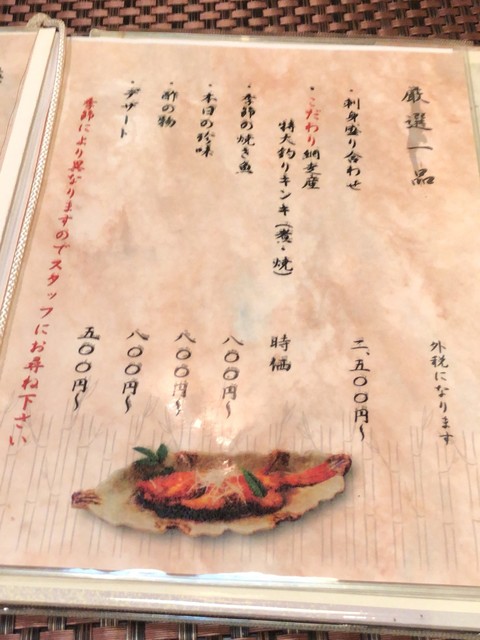 厳選一品
外税になります
・刺身盛り合わせ
二、五〇〇円〜
・こだわり網走産
特大釣りキンキ(煮・焼)
時価
・季節の焼き魚
八〇〇円〜
・本日の珍味
八〇〇円〜
・酢の物
八〇〇円〜
・デザート
五〇〇円〜
季節により異なりますのでスタッフにお尋ね下さい